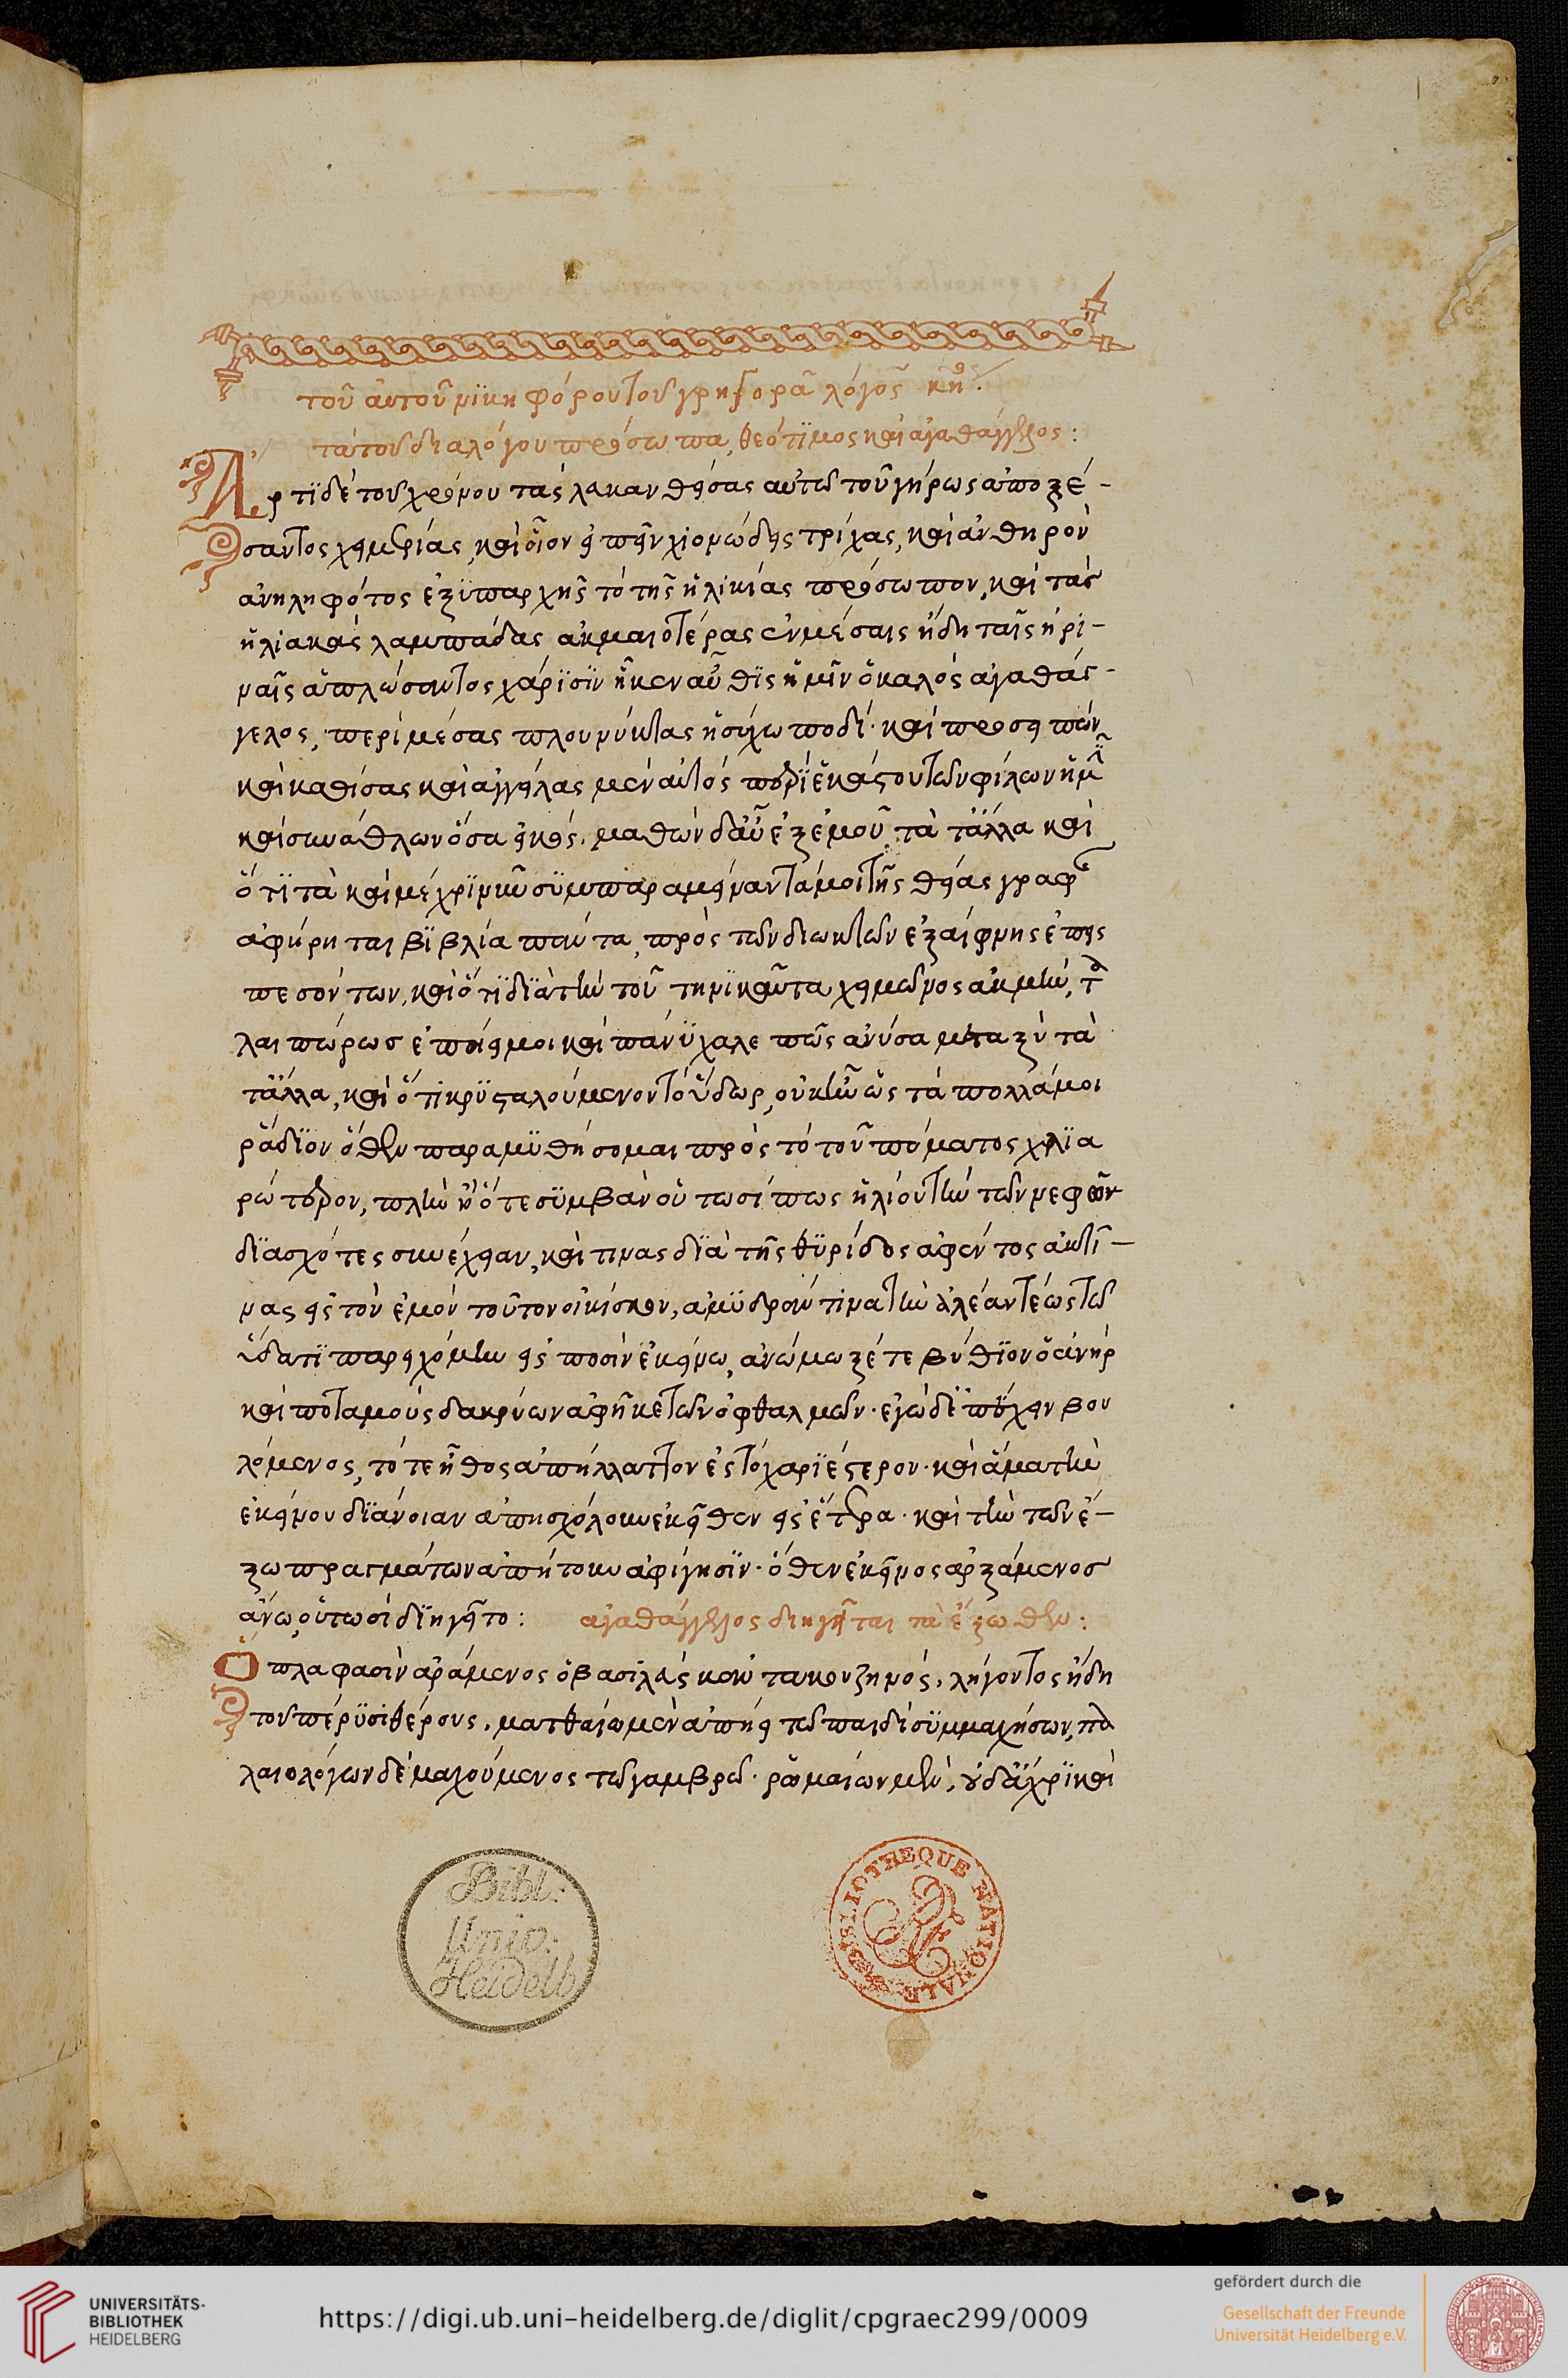 τοῦ αὐτοῦ νϊκηφόρου τοῦ γρηγορᾶ λόγος κηος
τὰ τοῦ διαλόγου πρόσωπα, θεότϊμος καὶ ἀγαθάγγελος:
Ἄρτϊ δὲ τοῦ χρόνου τὰς λακανθείσας αὐτῶ τοῦ γήρως ἀποξέ-
σαντος χειμερίας, καὶ οἷον εἰπεῖν χιονώδεις τρίχας, καὶ ἀνθηρὸν
ἀνηληφότος ἐξϋπαρχῆς τὸ τῆς ἡλικίας πρόσωπον, καὶ τὰς
ἡλιακὰς λαμπάδας ἀκμαιοτέρας ἐν μέσαις ἤδη ταῖς ἠρι-
ναῖς ἁπλώσαντος χάρϊσϊν ἧκεν αὖθϊς ἡμῖν ὁ καλὸς ἀγαθάγ-
γελος, περὶ μέσας που νύκτας ἡσύχω ποδί· καὶ προσειπὼν
καὶ καθίσας καὶ ἀγγείλας μὲν αὐτὸς περϊ ἑκάστου τῶν φίλων ἡμῖν
καὶ συνάθλων ὅσα εἰκός. μαθὼν δ' αὖ ἐξ ἐμοῦ τὰ τἄλλα καὶ
ὅτϊ τὰ καὶ μέχρϊ νῦν σϋμπαραμείναντά μοι τῆς θείας γραφῆς
ἀφήρηται βϊβλία πάντα, πρὸς τῶν διωκτῶν ἐξαίφνης ἐπεισ
πεσόντων, καὶ ὅτϊ δϊὰ τὴν τοῦ τηνϊκαῦτα χειμῶνος ἀκμὴν, τα
λαιπώρως ἐποίει μοι καὶ πάνϋ χαλεπῶς ἀνύσαι μεταξὺ τὰ
τἄλλα, καὶ ὅτι κρϋσταλούμενον τὸ ὕδωρ, οὐκ ἦν ὡς τὰ πολλά μοι
ῥάδϊον ὅθεν παραμϋθήσομαι πρὸς τὸ τοῦ πόματος χλϊα
ρώτερον, πλὴν εἰ ὅτε σϋμβὰν οὑτωσί πως ἡλίου τὴν τῶν νεφῶν
δϊασχόντες συνέχειαν, καὶ τινας δϊὰ τῆς θϋρίδος ἀφέντος ἀκτῖ-
νας εἰς τὸν ἐμὸν τοῦτον οἰκίσκον, ἀμϋδράν τινα τὴν ἀλέαν τέως τῶ
ὕδατϊ παρειχόμην εἰς πόσιν ἐκείνω, ἀνώμωξέ τε βύθϊον ὁ ἀνὴρ
καὶ ποταμοὺς δακρύων ἀφῆκε τῶν ὀφθαλμῶν· ἐγὼ δ' ἐπέχειν βου
λόμενος, τό τε ἦθος ἀπήλλαττον ἐς τὸ χαρϊέστερον· καὶ ἅμα τὴν
ἐκείνου δϊάνοιαν ἀπησχόλουν ἐκεῖθεν εἰς ἕτερα· καὶ τὴν τῶν ἔ-
ξω πραγμάτων ἀπῄτουν ἀφήγησϊν· ὅθεν ἐκεῖνος ἀρξάμενος
ἄνω, οὑτωσὶ δϊηγεῖτο: ἀγαθάγγελος διηγεῖται τὰ ἔξωθεν:
Ὅπλα φασὶν ἀράμενος ὁ βασϊλεὺς καν τακουζηνὸς, λήγοντος ἤδη
τοῦ πέρϋσι θέρους, ματθαίω μὲν ἀπῄει τῶ παιδὶ σϋμμαχήσων, πα
λαιολόγων δὲ μαχούμενος τῶ γαμβρῶ· ῥωμαίων μὲν, οὐδ' ἄχρϊ καὶ
Bibl:
Univ.
Heidelb
BIBLIOTHEQUE NATIONALE
UNIVERSITÄTS-
BIBLIOTHEK
HEIDELBERG
https://digi.ub.uni-heidelberg.de/diglit/cpgraec299/0009
gefördert durch die
Gesellschaft der Freunde
Universität Heidelberg e.V.